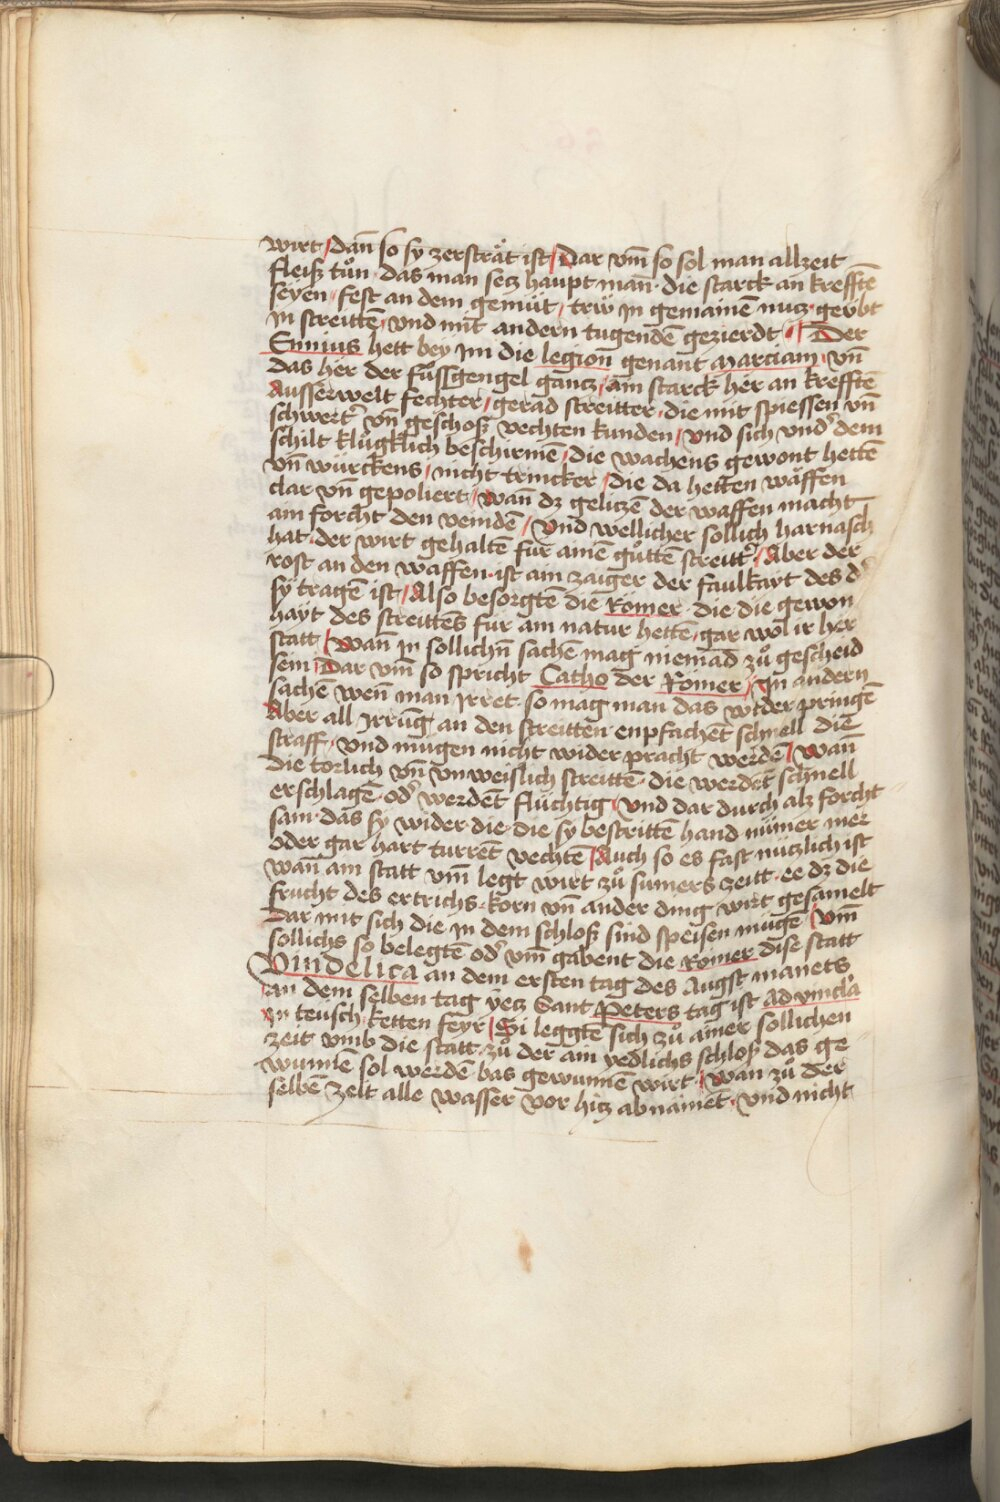 wirt / dañ so sy zersträt ist / Dar vm̄ so sol man allzeit
fleisz tůn · das man secz haupt man · die starck an krefftē
seyen / fest an dem gemüt / trẅ jn gemainē nucz · gev̈bt
in streittē / vnd mit andern tugendē gezierdt · / Der
Ennius hett bey jm die legion genant Marciam / vn̄
das her der fůssgengel gancz / ain starck her an kreffte
Ausserwelt fechter / gerad streitter · die mit spiessen vn̄
schwert vn̄ geschosz vechten kunden / vnd sich vnd' dem
schilt klůgklich beschirmē / die wachens gewont hettē
vn̄ würckens / nicht trincker / die da hetten waffen
clar vn̄ gepoliert / wan dz geliczē der waffen macht
ain forcht den veindē / Vnd wellicher sollich harnasch
hat · der wirt gehaltē für ainē gůttē streitt' / Aber der
rost an den waffen · ist ain zaiger der faulkayt des d'
sy tragē ist / Also besorgtē die Römer · die die gewon
hayt des streittēs für ain natur hettē / gar wol ir her
statt / Wan̄ jn sollichn̄ sachē mag niemād zů gescheid
sein / Dar vm̄ so spricht Catho der Römer / Jn andern
sachē wen̄ man jrret · so mag man das wider pringē
Aber all jrrūg an den streitten enpfachent schnell die
straff / vnd mugen nicht wider pracht werdē / Wan̄
die torlich vn̄ vnweislich streittē · die werdēt schnell
erschlagē · od' werdēt flüchtig / vnd dar durch alz forcht
sam · das sy wider die · die sy bestrittē hand nümer mer
oder gar hart turrēt vechtē / Auch so es fast nüczlich ist
wan̄ ain statt vm̄ legt wirt zů sumers zeitt · ee dz die
frucht des ertrichs · korn vn̄ ander ding wirt gesamelt
Dar mit sich die jn dem schlosz sind speisen mügē / Vm̄
sollichs so belegtē od' vm̄ gabent die Römer dise statt
Vindelica an dem ersten tag des Augst manets
an dem selben tag yecz Sant Peters tag ist Ad vincla
zu teusch · ketten feyr / Si leggtē sich zů ainer sollichen
zeit vmb die statt · zů der ain yedlichs schlosz das ge
wunnē sol werdē · bas gewunnē wirt / wan zů der
selbē zeit alle wasser vor hicz abnāment · vnd nicht